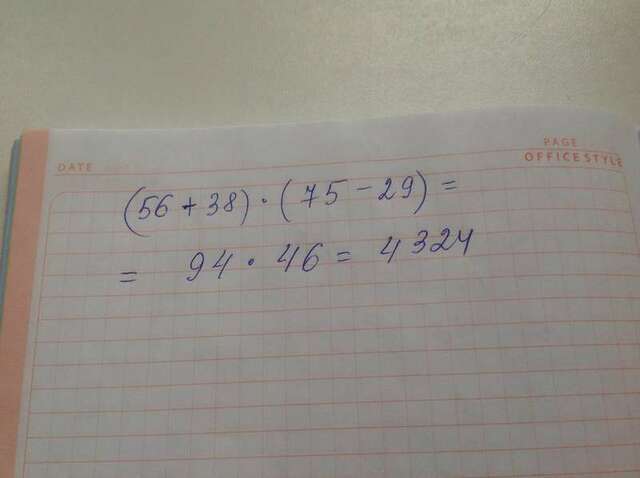 DATE
PAGE
OFFICE STYLE
(56 + 38) · (75 - 29) =
= 94 · 46 = 4324